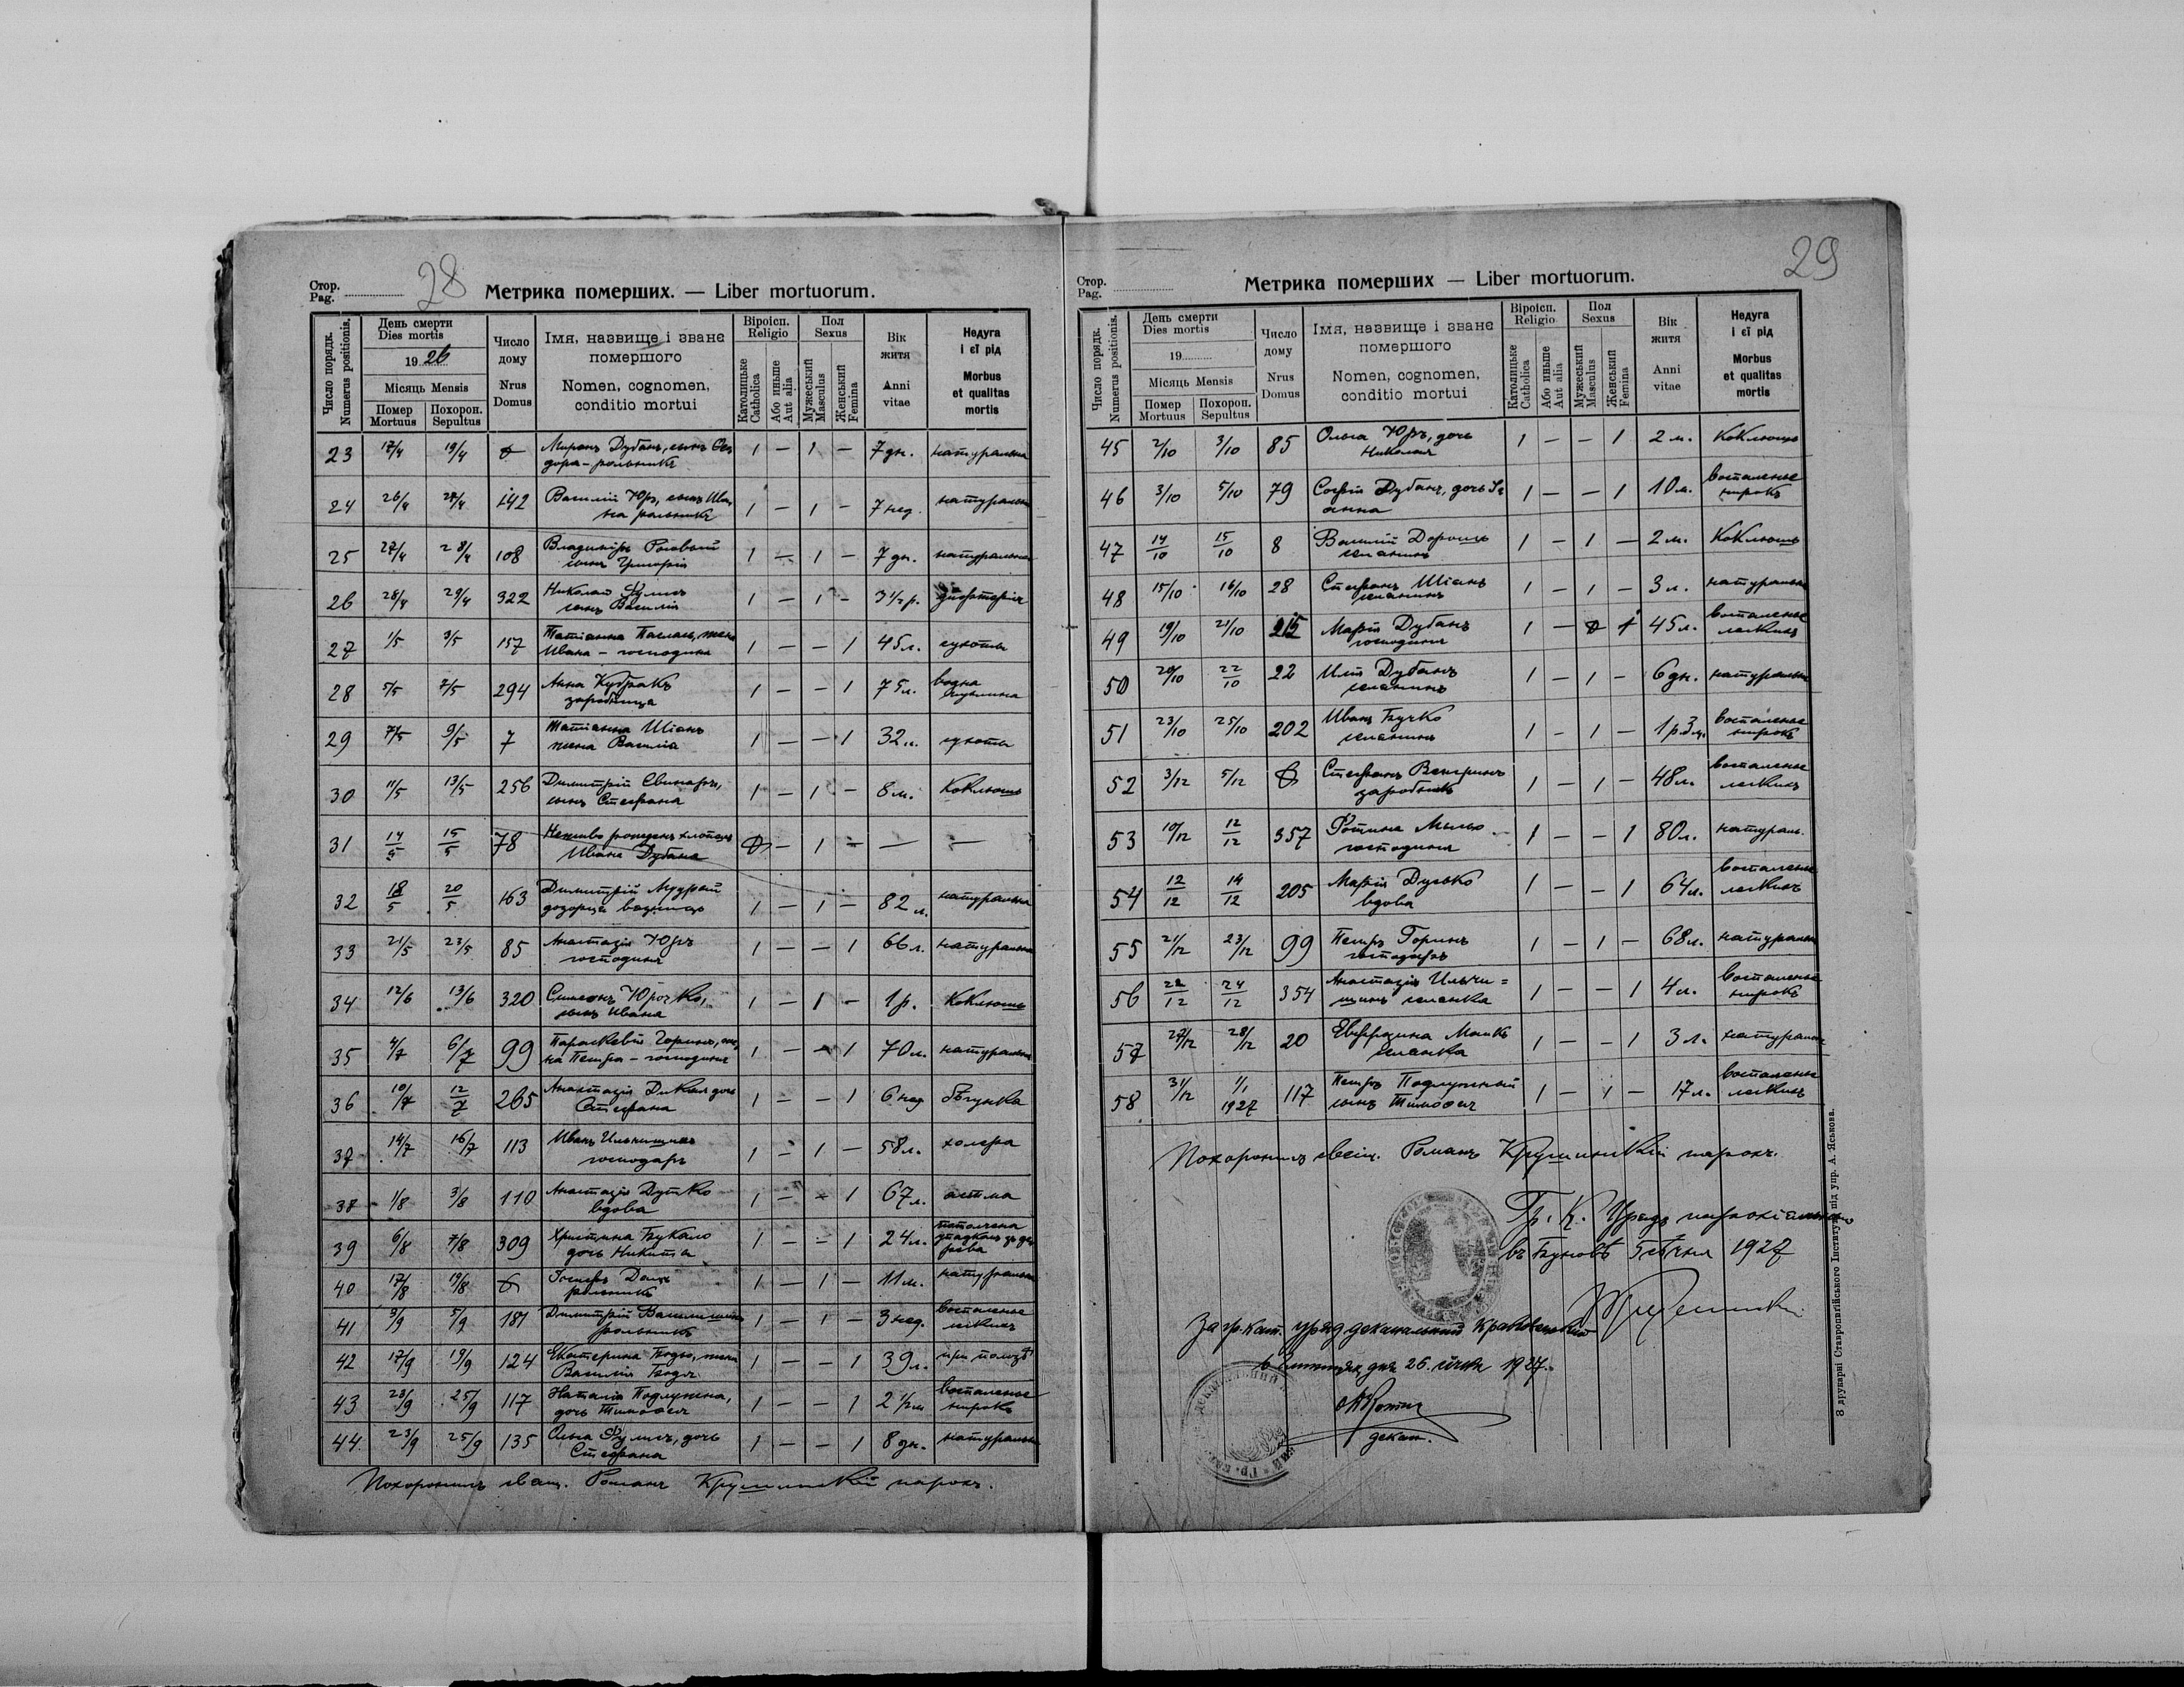 28
Стор.
Pag.
Метрика померших. — Liber mortuorum.
Число порядк.
Numerus positionis.
День смерти
Dies mortis
1926
Місяць Mensis
Помер
Mortuus
Похорон.
Sepultus
Число
дому
Nrus
Domus
Імя, назвище і зване
помершого
Nomen, cognomen,
conditio mortui
Віроісп.
Religio
Католицьке
Catholica
Або иньше
Aut alia
Пол
Sexus
Мужеський
Masculus
Женський
Femina
Вік
житя
Anni
vitae
Недуга
і єї рід
Morbus
et qualitas
mortis
23 17/4 19/4 Миронъ Дубанъ, сынъ 1 — 1 — 7 дн. натуральна
дора - рольникъ
24 26/4 27/4 142 Василій Юръ, сынъ Ива 1 — 1 — 7 нед. натуральна
на рольникъ
25 27/4 28/4 108 Владиміръ Роговый 1 — 1 — 7 дн. натуральна
сынъ Григорія
26 28/4 29/4 322 Николай 1 — 1 — 3 1/2 р. дифтерія
сынъ Василія
27 1/5 3/5 157 Татіанна жена 1 — — 1 45 л. сухоты
Ивана — господиня
28 5/5 7/5 294 Анна 1 — — 1 75 л. водна
зарібница пухлина
29 7/5 9/5 7 Татіанна Шіанъ 1 — — 1 32 л. сухоты
жена Василія
30 11/5 13/5 256 Димитрій Свинаръ, 1 — 1 — 8 м. Коклюшъ
сынъ Стефана
31 14/5 15/5 78 Неживо рожденъ хлопецъ — 1 — — —
Ивана Дубана
32 18/5 20/5 163 Димитрій Мудрый 1 — 1 — 82 л. натуральна
дозорця
33 21/5 23/5 85 Анастазія Юръ 1 — — 1 66 л. натуральна
господиня
34 12/6 13/6 320 Симеонъ Юрочко, 1 — 1 — 1 р. Коклюшъ
сынъ Ивана
35 4/7 6/7 99 Параскевія Горинъ, же 1 — — 1 70 л. натуральна
на Петра — господиня
36 10/7 12/7 265 Анастазія Дикал дочь 1 — — 1 6 нед бѣгунка
Стефана
37 14/7 16/7 113 Иванъ Ильчишинъ 1 — 1 — 58 л. холера
господаръ
38 1/8 3/8 110 Анастазія Дутко 1 — — 1 67 л. астма
вдова
39 6/8 7/8 309 Христина Букало 1 — — 1 24 л.
дочь Никиты
40 17/8 19/8 Іосифъ Дацъ 1 — 1 — 11 м. натуральна
рольникъ
41 3/9 5/9 187 Димитрій Василишинъ 1 — 1 — 3 нед. воспаленье
рольникъ легкихъ
42 17/9 19/9 124 Екатерина Бодьо, жена 1 — — 1 39 л. при полозѣ
Василія
43 23/9 25/9 117 Наталія Подлужна, 1 — — 1 2 1/2 м воспаленье
дочь Тимофея нирокъ
44 23/9 25/9 135 Ольга дочь 1 — — 1 8 дн. натуральна
Стефана
Похоронилъ свящ. Романъ Крушинскій парохъ.
29
Стор.
Pag.
Метрика померших — Liber mortuorum.
Число порядк.
Numerus positionis.
День смерти
Dies mortis
19
Місяць Mensis
Помер
Mortuus
Похорон.
Sepultus
Число
дому
Nrus
Domus
Імя, назвище і зване
помершого
Nomen, cognomen,
conditio mortui
Віроісп.
Religio
Католицьке
Catholica
Або иньше
Aut alia
Пол
Sexus
Мужеський
Masculus
Женський
Femina
Вік
житя
Anni
vitae
Недуга
і єї рід
Morbus
et qualitas
mortis
45 2/10 3/10 85 Ольга Юръ, дочь 1 — — 1 2 м. Коклюшъ
Николая
46 3/10 5/10 79 Софія Дубанъ, дочь Іо 1 — — 1 10 м. воспаленье
анна нирокъ
47 14/10 15/10 8 Василій Дорошъ 1 — 1 — 2 м. Коклюшъ
селянинъ
48 15/10 16/10 28 Стефанъ Шіанъ 1 — 1 — 3 л. натуральна
селянинъ
49 19/10 21/10 215 Марія Дубанъ 1 — 1 45 л. воспаленье
господиня легкихъ
50 20/10 22/10 22 Илія Дубанъ 1 — 1 — 6 дн. натуральна
селянинъ
51 23/10 25/10 202 Иванъ Бучко 1 — 1 — 1 р 3 м. воспаленье
селянинъ нирокъ
52 3/12 5/12 Стефанъ Венгринъ 1 — 1 — 48 л. воспаленье
заробникъ легкихъ
53 10/12 12/12 357 Фотина Мильо 1 — — 1 80 л. натураль.
господиня
54 12/12 14/12 205 Марія Дусько 1 — — 1 64 л. воспаленье
вдова легкихъ
55 21/12 23/12 99 Петръ Горинъ 1 — 1 — 68 л. натуральна
господаръ
56 22/12 24/12 354 Анастазія Ильчи= 1 — — 1 4 л. воспаленье
шинъ селянка нирокъ
57 27/12 28/12 20 Евфрозина Мацкъ 1 — — 1 3 л. натуральна
селянка
58 31/12 1/1 1927 117 Петръ Подлужный 1 — 1 — 17 л. воспаленье
сынъ Тимофея легкихъ
Похоронилъ свящ. Романъ Крушинскій парохъ.
Гр. К. Урядъ парохіальный
въ Буновѣ 5 січня 1927
За гр. кат. уряд деканальний Краковецький
дня 26. січня 1927.
декан.
З друкарні Ставропігійського Інституту під упр. А. Яськова.